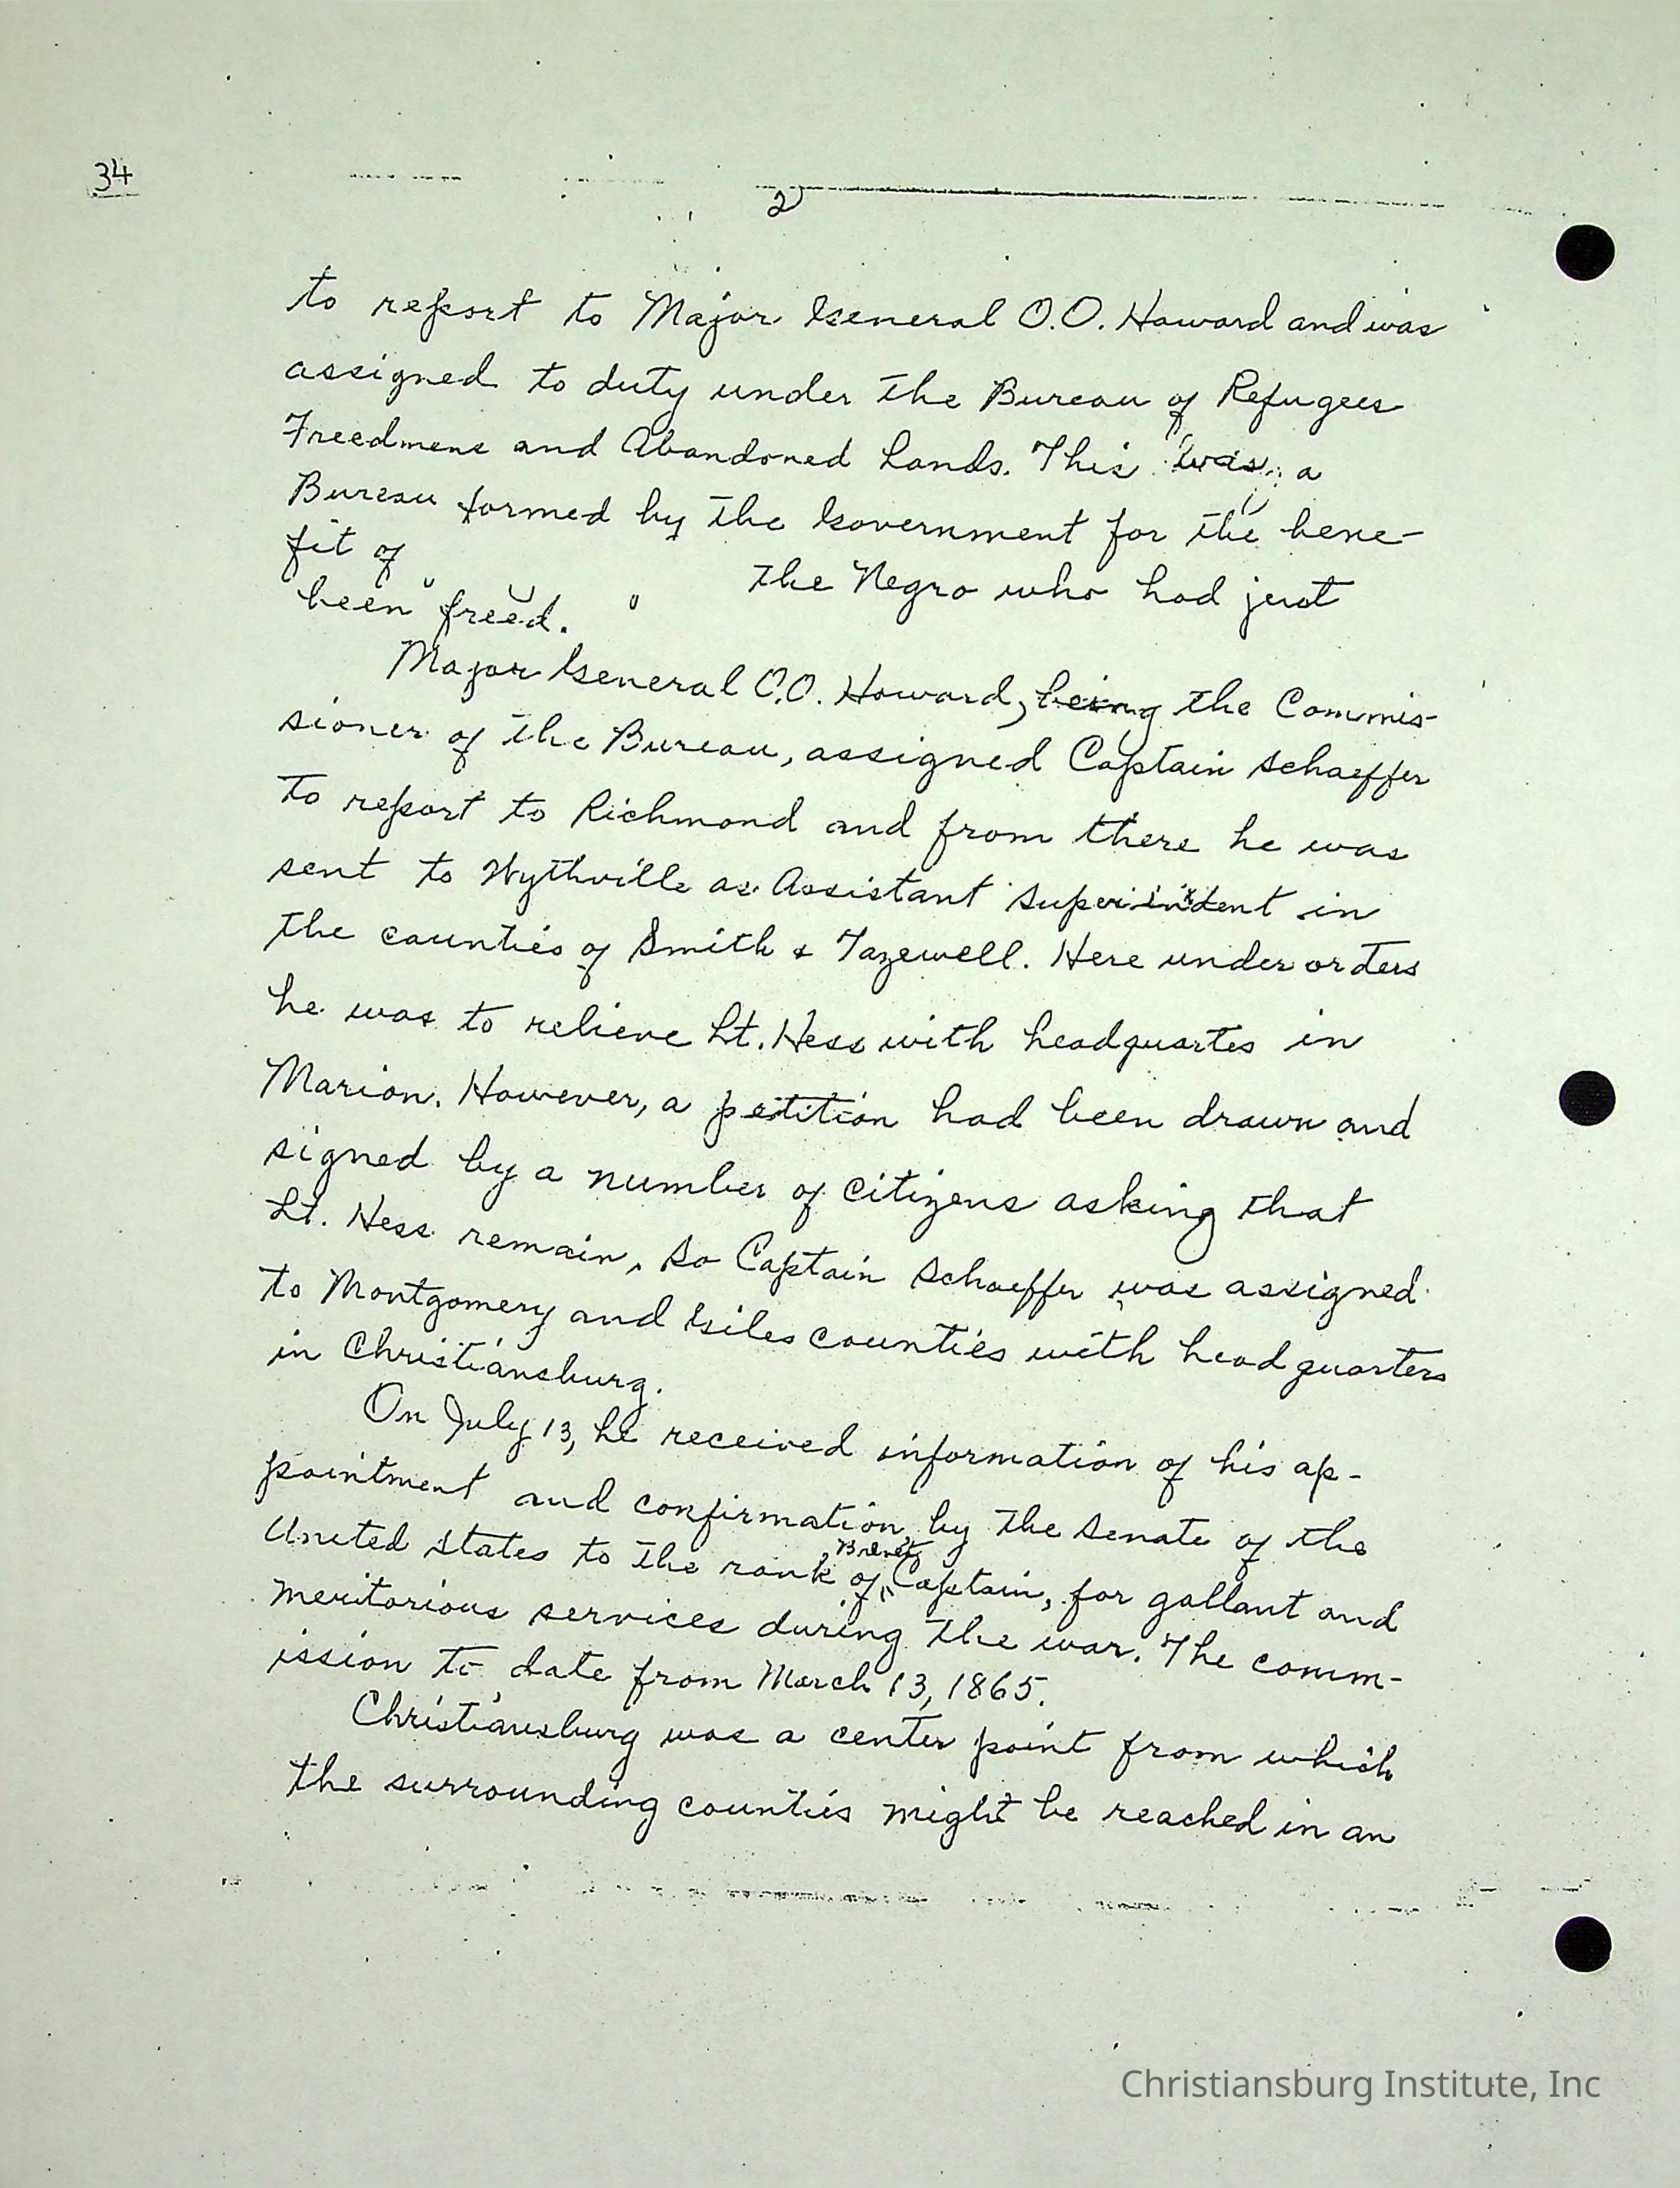 34
2
to report to Major General O.O. Howard and was
assigned to duty under the Bureau of Refugees
Freedmens and Abandoned Lands. This was a
Bureau formed by the Government for the bene-
fit of the Negro who had just
been freed.
Major General O.O. Howard, being the Commis-
sioner of the Bureau, assigned Captain Schaeffer
to report to Richmond and from there he was
sent to Wythville as Assistant Superintdent in
the counties of Smith & Tazewell. Here under orders
he was to relieve Lt. Hess with headquartes in
Marion. However, a petition had been drawn and
signed by a number of citizens asking that
Lt. Hess remain, so Captain Schaeffer was assigned
to Montgomery and Giles counties with headquarters
in Christiansburg.
On July 13, he received information of his ap-
pointment and confirmation by the Senate of the
United States to the rank of Brevet Captain, for gallant and
meritorious services during the war. The comm-
ission to date from March 13, 1865.
Christiansburg was a center point from which
the surrounding counties might be reached in an
Christiansburg Institute, Inc